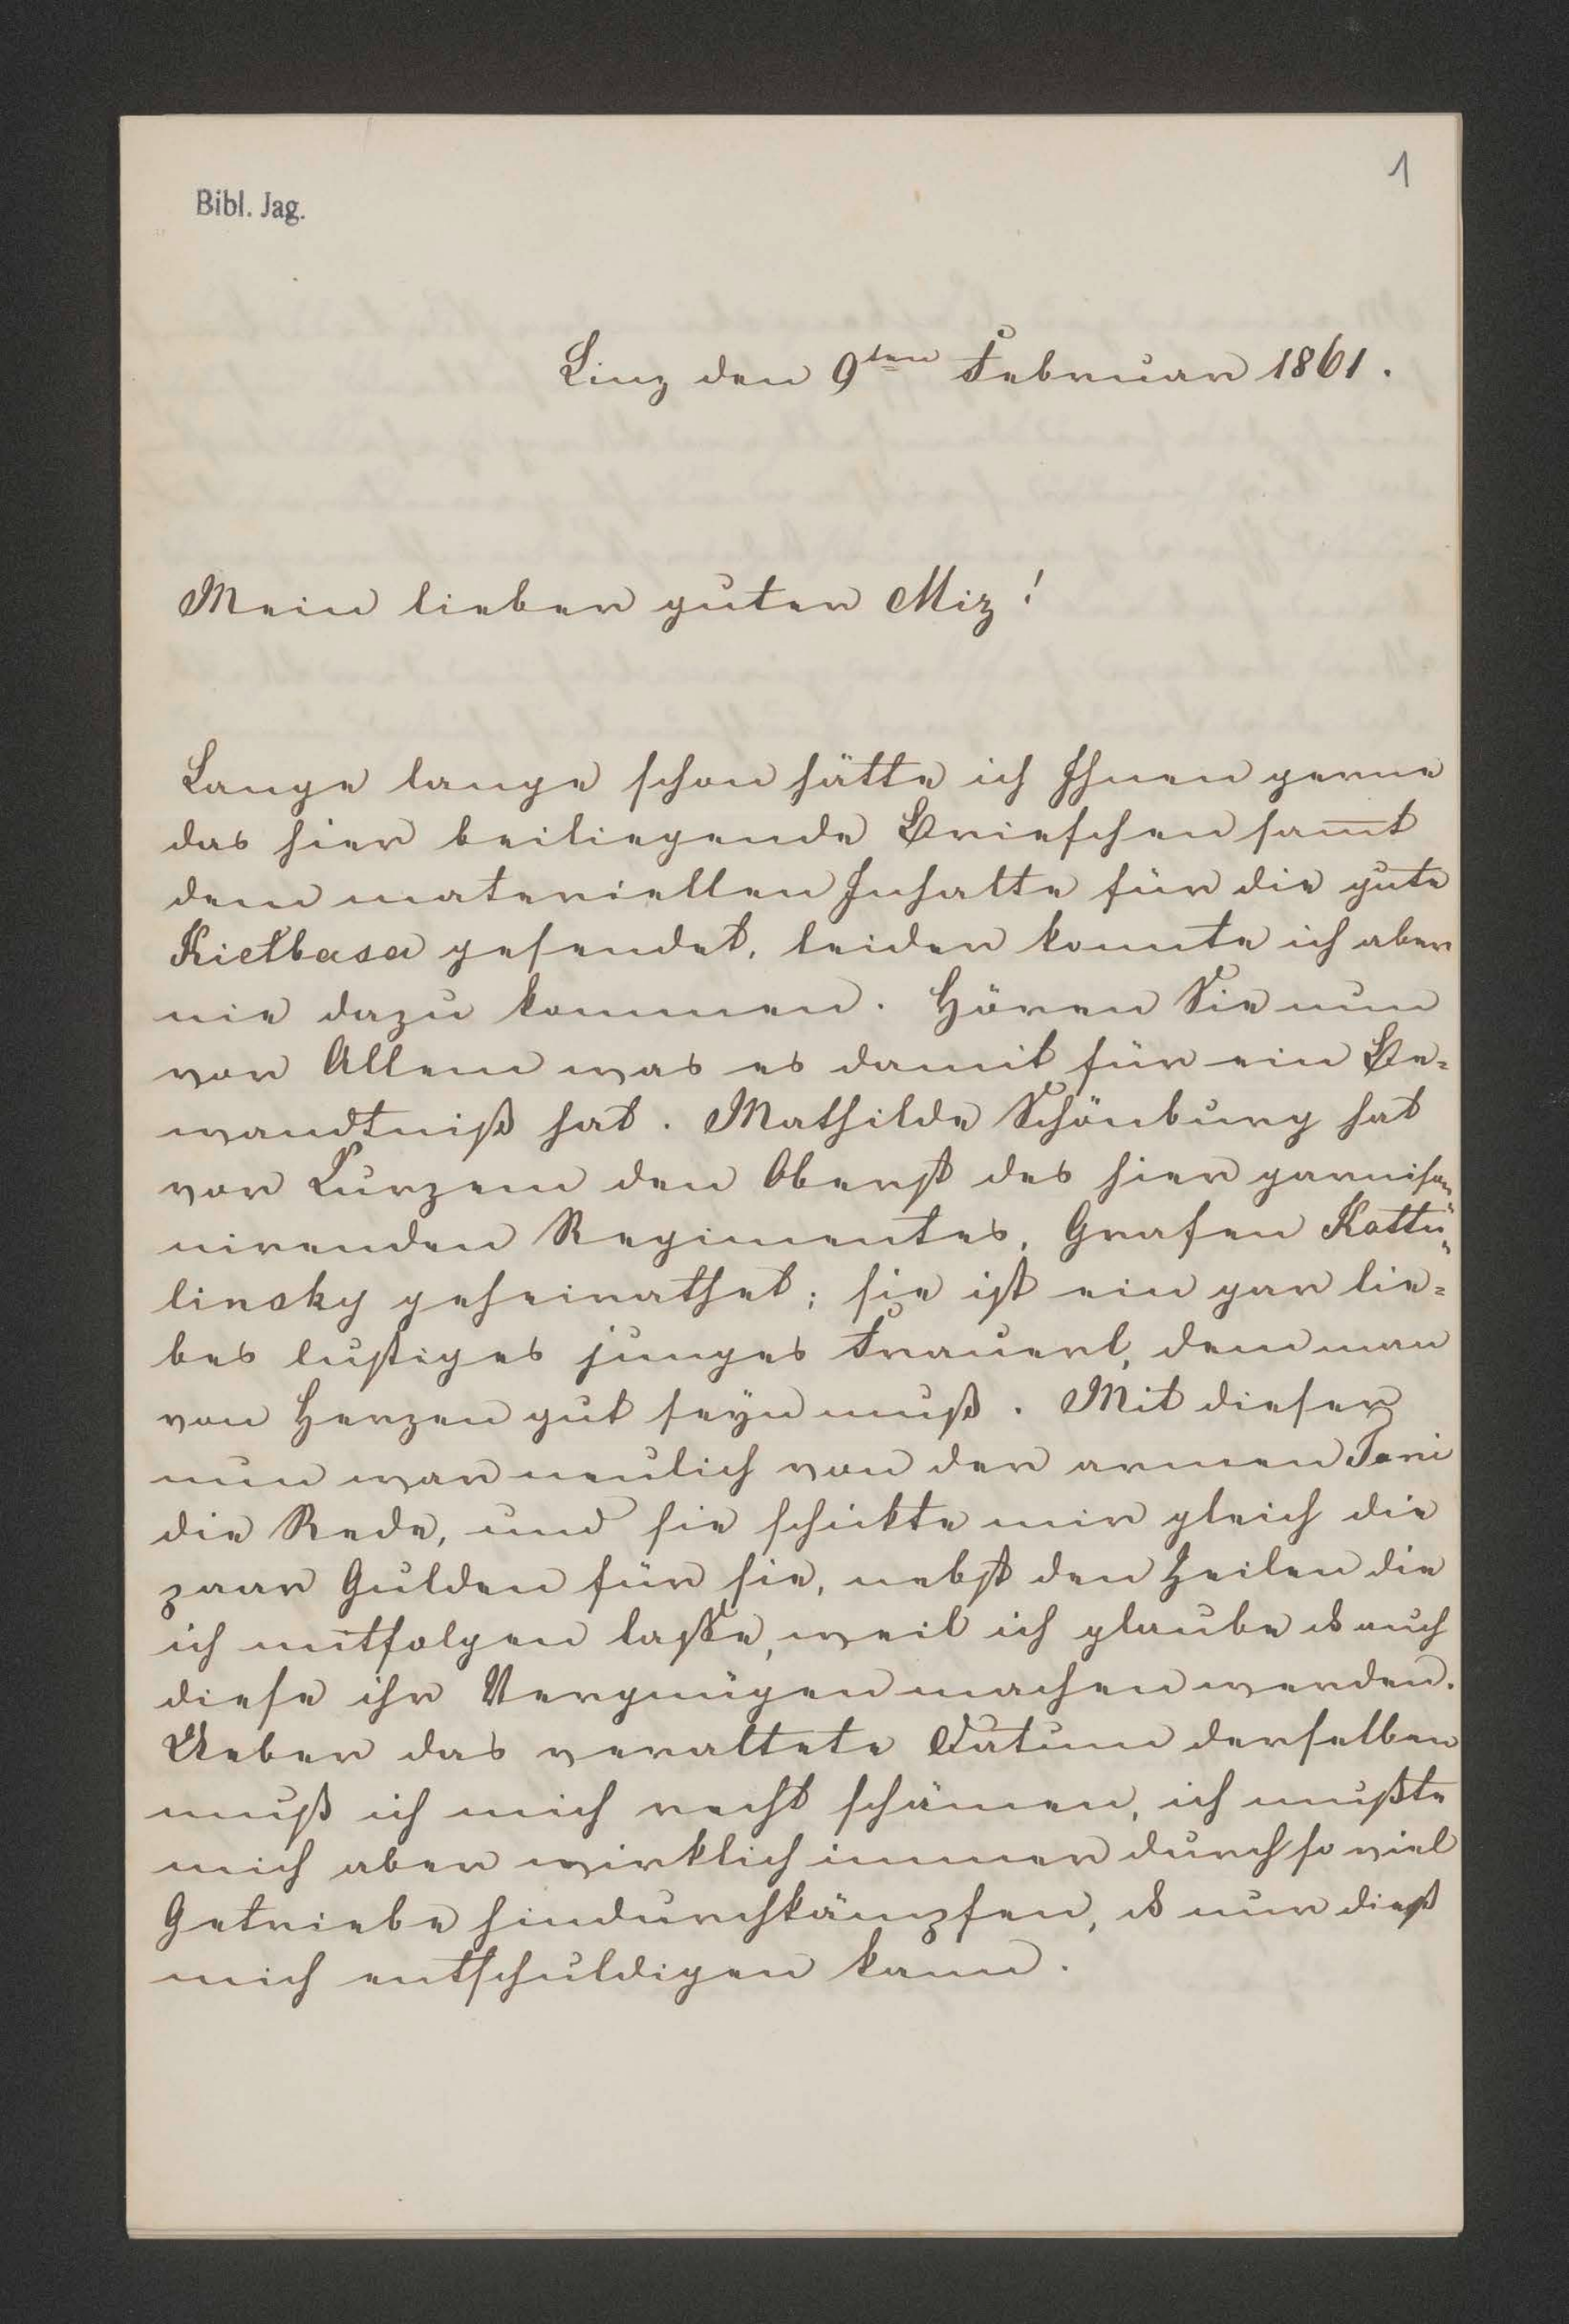 1
Bibl. Jag.
Linz den 9ten Februar 1861.
Mein lieber guter Miz!
Lange lange schon hätte ich Ihnen gerne
das hier beiliegende Briefchen samt
dem materiellen Inhalte für die gute
Kiełbasa gesendet, leider konnte ich aber
nie dazu kommen. Hören Sie nun
vor Allem was es damit für ein Be=
wandtniß hat. Mathilde Schönburg hat
vor Kurzem den Oberst des hier garniso=
nirenden Regimentes, Grafen Kottu=
linsky geheirathet; sie ist ein gar lie=
bes lustiges junges Frauerl, dem man
von Herzen gut seyn muß. Mit dieser
nun war neulich von der armen Toni
die Rede, und sie schickte mir gleich die
paar Gulden für sie, nebst den Zeilen die
ich mitfolgen lasse, weil ich glaube dß auch
diese ihr Vergnügen machen werden.
Ueber das veraltete Datum derselben
muß ich mich recht schämen, ich mußte
mich aber wirklich immer durch so viel
Getriebe hindurchkämpfen, dß nur dieß
mich entschuldigen kann.